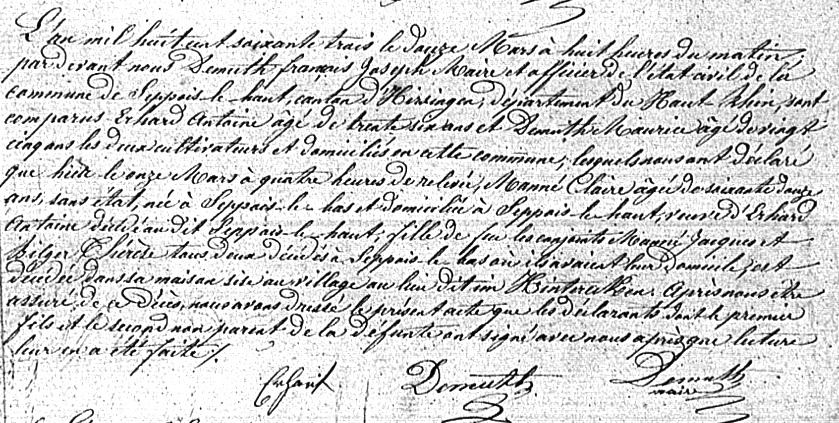 L'an mil huit cent soixante trois le douze Mars à huit heures du matin,
par devant nous Demuth françois Joseph Maire et officier de l'état civil de la
commune de Seppois-le-haut, canton d'Hirsingen, département du Haut-Rhin, sont
comparus Erhard Antoine âgé de trente six ans et Demuth Maurice âgé de vingt
cinq ans les deux cultivateurs et domiciliés en cette commune, lesquels nous ont déclaré
que hier le onze Mars à quatre heures de relevée, Manné Claire âgée de soixante douze
ans, sans état, née à Seppois-le-bas et domiciliée à Seppois-le-haut, veuve d'Erhard
Antoine décédé au dit Seppois-le-haut, fille de feu les conjoints Manné Jacques et
Bilger Thérèse tous deux décédés à Seppois-le-bas où ils avaient leur domicile, est
décédée dans sa maison sise au village au lieu dit im. Après nous être
assuré de ce décès, nous avons dressé le présent acte que les déclarants dont le premier
fils et le second non parent de la défunte ont signé avec nous après que lecture
leur en a été faite /.
Erhard Demuth Demuth
maire